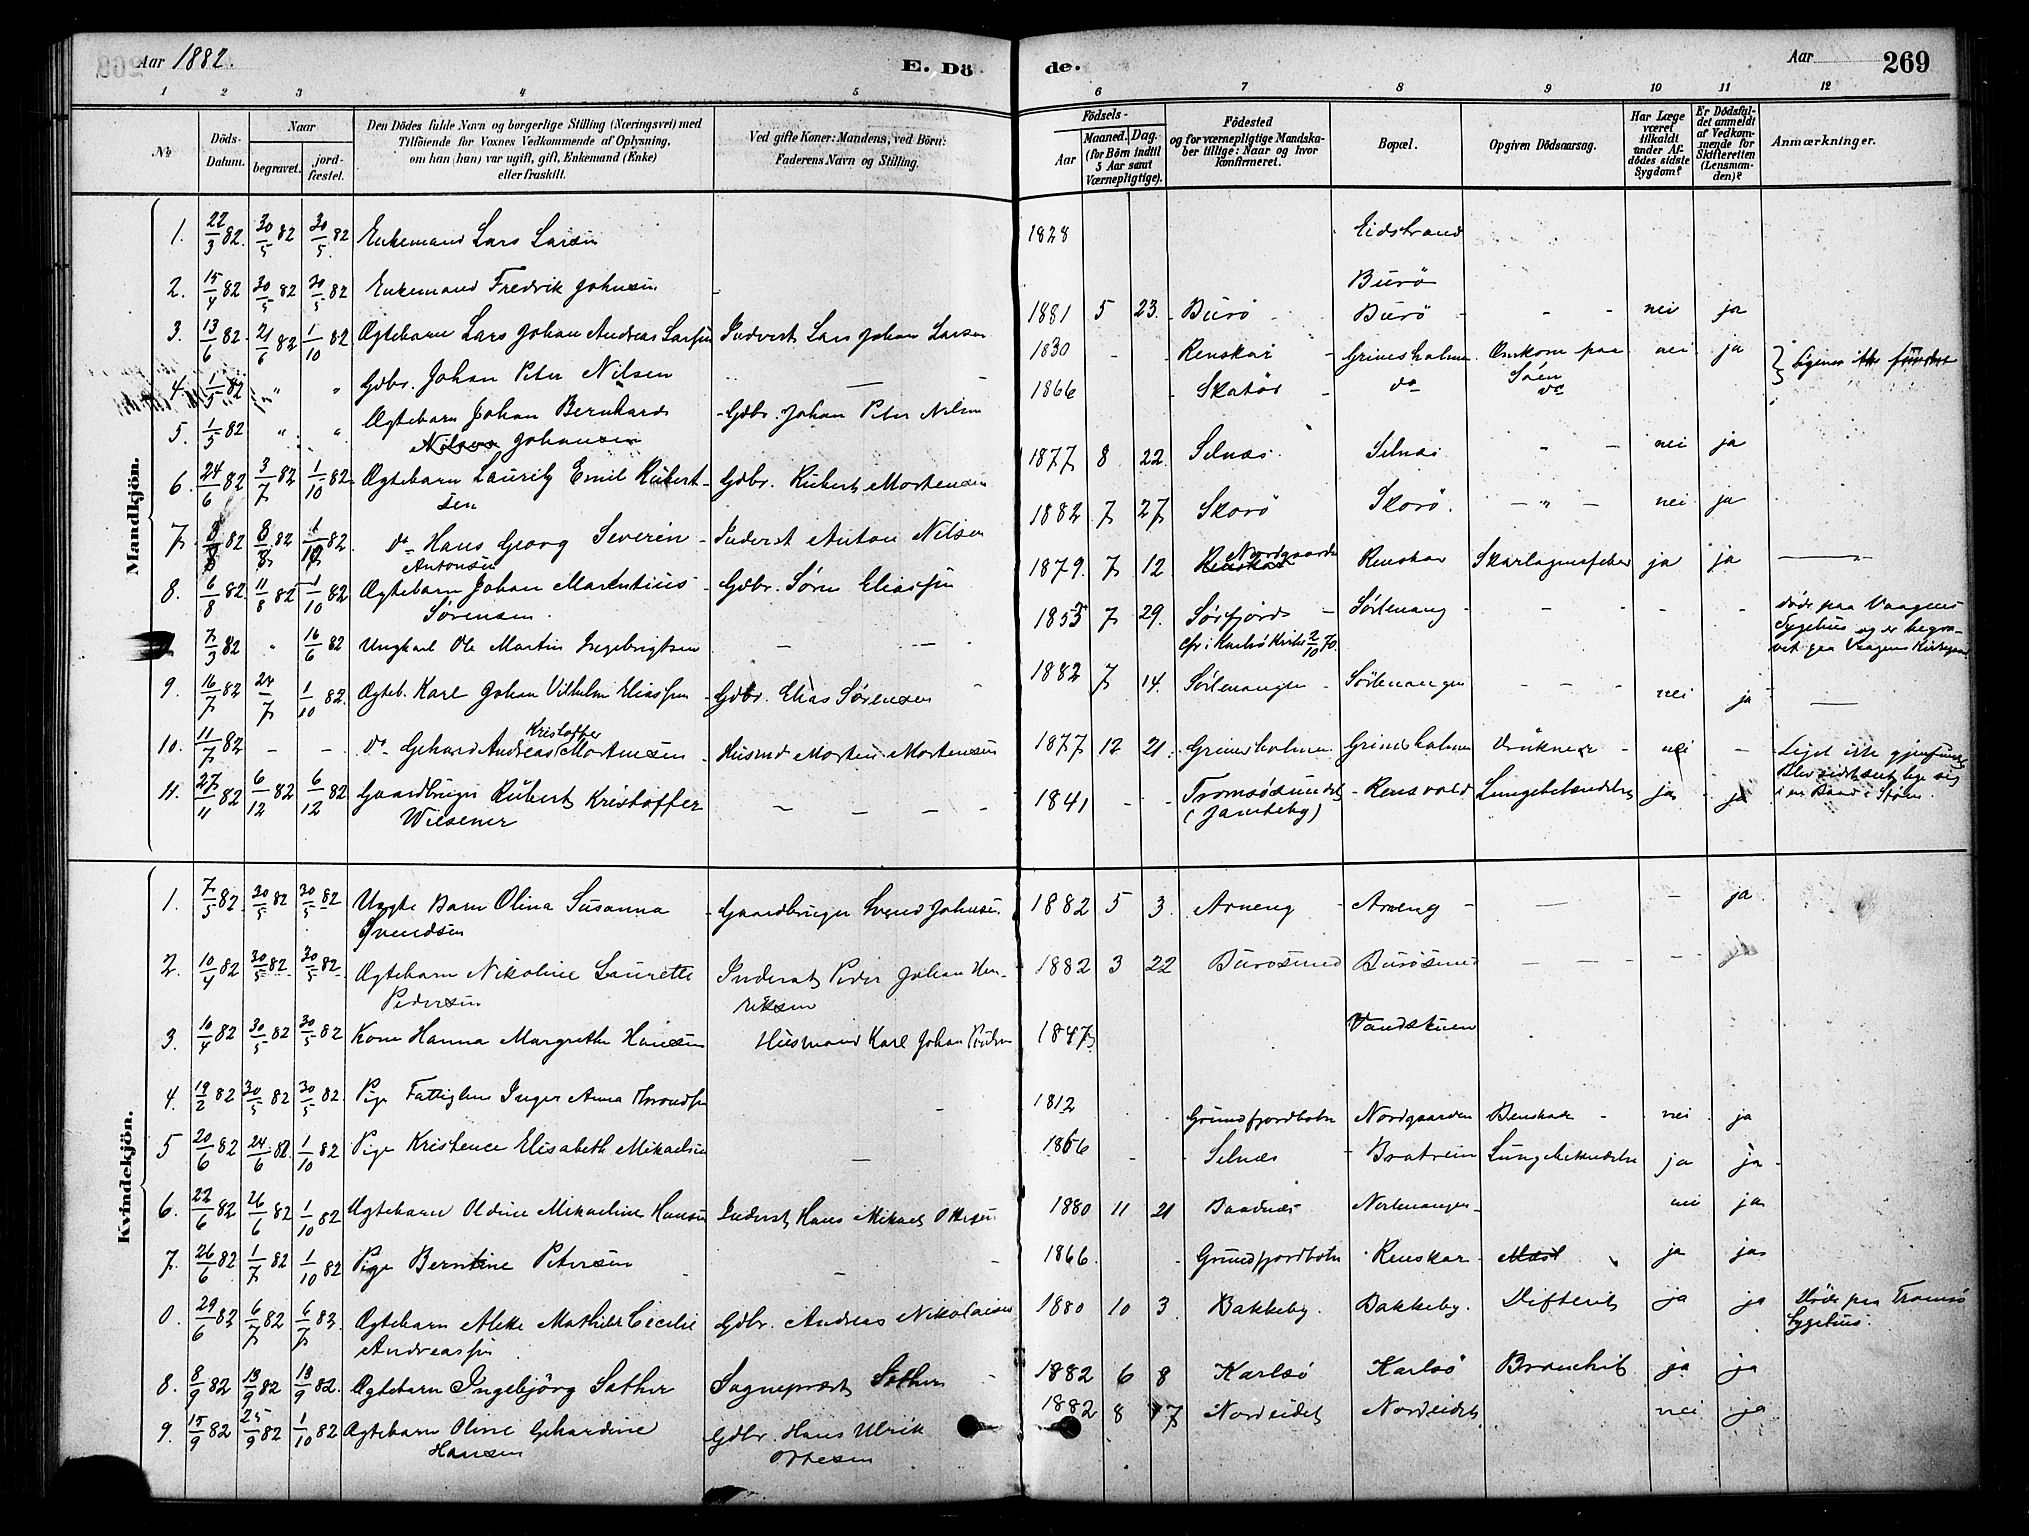 Aar 1882. E. Döde. Aar 269
1 2 3 4 5 6 7 8 9 10 11 12
No. Döds-Datum. Naar begravet. jordfæstet. Den Dödes fulde Navn og borgerlige Stilling (Næringsvei) med Tilföiende for Voxnes Vedkommende af Oplysning, om han (hun) var ugift, gift, Enkemand (Enke) eller fraskilt. Ved gifte Koner: Mandens, ved Börn: Faderens Navn og Stilling. Födsels- Aar Maaned. Dag. (for Börn indtil 5 Aar samt Værnepligtige). Födested og for værnepligtige Mandskaber tillige: Naar og hvor konfirmeret. Bopæl. Opgiven Dödsaarsag. Har Læge været tilkaldt under Afdödes sidste Sygdom? Er Dödsfaldet anmeldt af Vedkommende for Skifteretten (Lensmanden)? Anmærkninger.
Mandkjön.
1. 22/3 82. 30/5 82 30/5 82 Enkemand Lars Larsen 1828 Eidstrand
2. 15/4 82 30/5 82 30/5 82 Enkemand Fredrik Johnsen Burö
3. 13/6 82. 21/6 82 1/10 82 Ægtebarn Lars Johan Andreas Larsen Inderst Lars Johan Larsen 1881 5 23. Burö Burö nei ja
4. 1/5 82 " " Gdbr. Johan Peter Nilsen 1830 Renskar Grimsholmen Omkom paa Söen nei ja
5. 1/5 82 " " Ægtebarn Johan Bernhard Johansen Gdbr. Johan Peter Nilsen 1866 Skatör do do
6. 24/6 82 3/7 82 1/10 82 Ægtebarn Lauritz Emil Rubertsen Gdbr. Rubert Mortensen 1877 8 22. Selnæs Selnæs nei ja
7. 8/8 82 8/8 82 1/10 82. do Hans Georg Severin Antonsen Inderst Anton Nilsen 1882 7 27 Skorö Skorö. " nei ja
8. 6/8 82 11/8 82 1/10 82 Ægtebarn Johan Marentius Sörensen Gdbr. Sören Eliassen 1879. 7 12 Nordgaarden Renskar Skarlagensfeber ja ja
7/3 82 " 16/6 82 Ungkarl Ole Martin Ingebrigtsen 1855 7 29. Sörfjord Sörlenang döde paa Vaagens Sygehus og er begravet paa Vaagens Kirkegaard
cfr. i Karlsö Kirke 2/10 70.
9. 16/7 82 24/7 1/10 82. Ægteb. Karl Johan Vilhelm Eliassen Gdbr. Elias Sörensen 1882 7 14. Sörlenangen Sörlenangen nei ja
10. 11/7 82 do Gehard Andreas Kristoffer Mortensen Husmd Morten Mortensen 1877 12 21. Grimsholmen Grimsholmen Druknet nei Liget ikke gjenfundet
11. 27/11 82 6/12 82 6/12 82 Gaardbruger Rubert Kristoffer Wiesener 1841 Tromsösundet (Jamteby) Rensvold Lungebetændelse ja ja
Kvindekjön.
1. 7/5 82. 30/5 82 30/5 82 Uægte Barn Olina Susanna Svendsen Gaardbruger Svend Johnsen. 1882 5 3. Arneng Arneng ja
2. 10/4 82 30/5 82 30/5 82 Ægtebarn Nikoline Laurette Pedersen Inderst Peder Johan Henriksen 1882 3 22 Burösund Burösund ja
3. 10/4 82 30/5 82 30/5 82 Kone Hanna Margrethe Hansen Husmand Karl Johan 1847 Vandstuen
4. 19/2 82 30/5 82 30/5 82 Pige Fattiglem Inger Anna 1812 Grundfjordbotn Nordgaarden nei ja
5 20/6 82 24/6 82. 1/10 82 Pige Kristence Elisabeth Mikaelsen 1856 Selnæs Bratrein Lungebetændelse ja ja
6. 22/6 82 26/6 82 1/10 82 Ægtebarn Oldine Mikaeline Hansen Inderst Hans Mikael Ottesen 1880 11 21 Baadnæs Norlenangen nei ja
7. 26/6 82 1/7 82 1/10 82 Pige Berntine Petersen 1866. Grundfjordbotn Renskar ja ja
0. 29/6 82 6/7 82 6/7 82. Ægtebarn Alette Mathilde Cecilie Andreassen Gdbr. Andreas Nikolaisen 1880 10 3 Bakkeby. Bakkeby. Difterit ja ja Döde paa Tromsö Sygehus.
8. 8/9 82 13/9 82 13/9 82. Ægtebarn Ingebjörg Sather Sognepræst Sather 1882 6 8 Karlsö Karlsö Bronchit ja ja
9. 15/9 82 25/9 82 1/10 82 Ægtebarn Oline Gehardine Hansen Gdbr. Hans Ulrik Ottesen 1882 8 17 Nordeidet Nordeidet nei ja